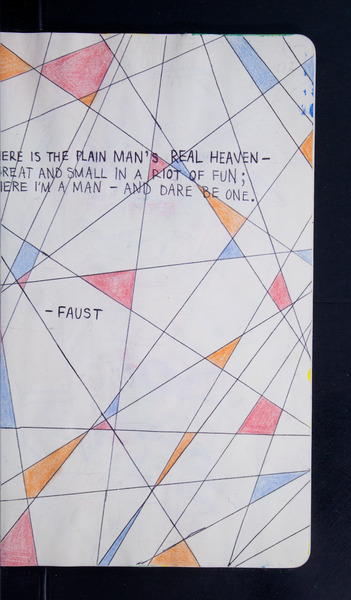 HERE IS THE PLAIN MAN'S REAL HEAVEN –
GREAT AND SMALL IN A RIOT OF FUN;
HERE I'M A MAN – AND DARE BE ONE.
– FAUST